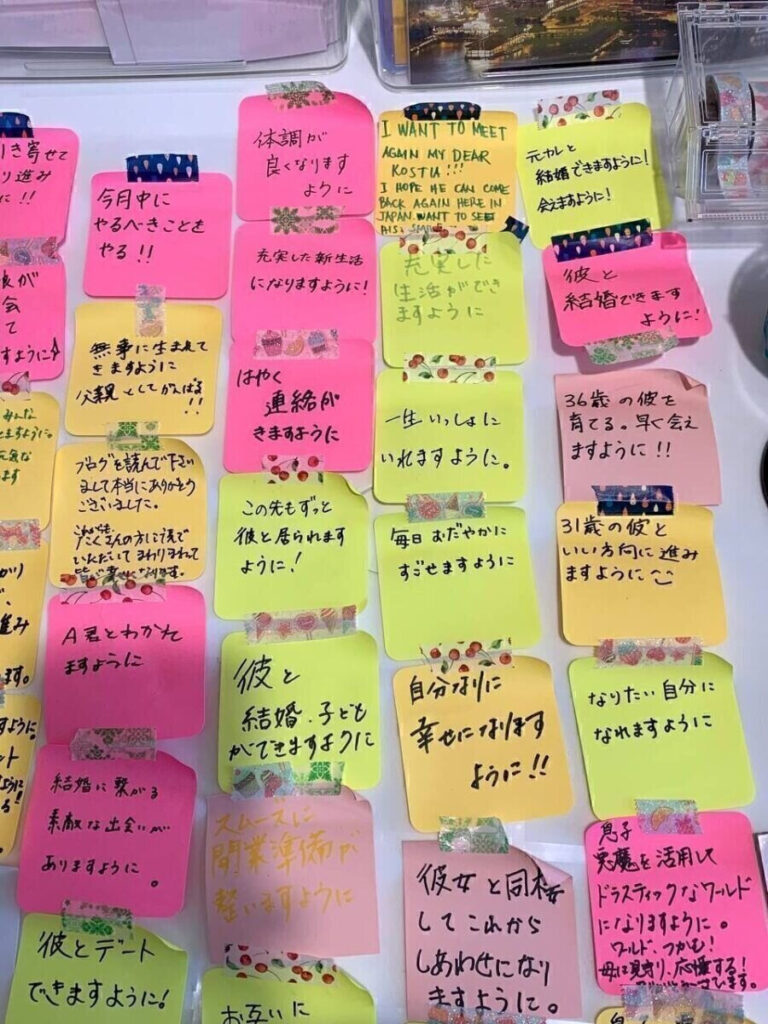 き寄せて
り進み
に!!
今月中に
やるべきことを
やる!!
体調が
良くなります
ように
I WANT TO MEET
AGAIN MY DEAR
KOSTIA!!!
I HOPE HE CAN COME
BACK AGAIN HERE IN
JAPAN. WANT TO SEE
HIS
元カレと
結婚できますように!
会えますように!
が
会
て
ますように
無事に生まれて
きますように
父親としてがんばる
!!
充実した新生活
になりますように!
充実した
生活ができ
ますように
彼と
結婚できます
ように!
みんな
せますように。
元気な
ます
ブログを読んで下さい
まして本当にありがとう
ございました。
これからも
たくさんの方に読で
いただいてまわりまわって
皆が幸せになります。
はやく
連絡が
きますように
一生いっしょに
いれますように。
36歳の彼を
育てる。早く会え
ますように!!
この先もずっと
彼と居られます
ように!
毎日おだやかに
すごせますように
31歳の彼と
いい方向に進み
ますように
かり
進み
ます。
A君とわかれ
ますように
彼と
結婚、子ども
ができますように
自分なりに
幸せになります
ように!!
なりたい自分に
なれますように
ように
ント
ように
る!
結婚に繋がる
素敵な出会いが
ありますように。
スムーズに
開業準備が
整いますように
彼女と同棲
してこれから
しあわせになり
ますように。
息子
悪魔を活用して
ドラスティックなワールド
になりますように。
ワールド、つかも!
母は見守り、応援する!
彼とデート
できますように!
お互いに